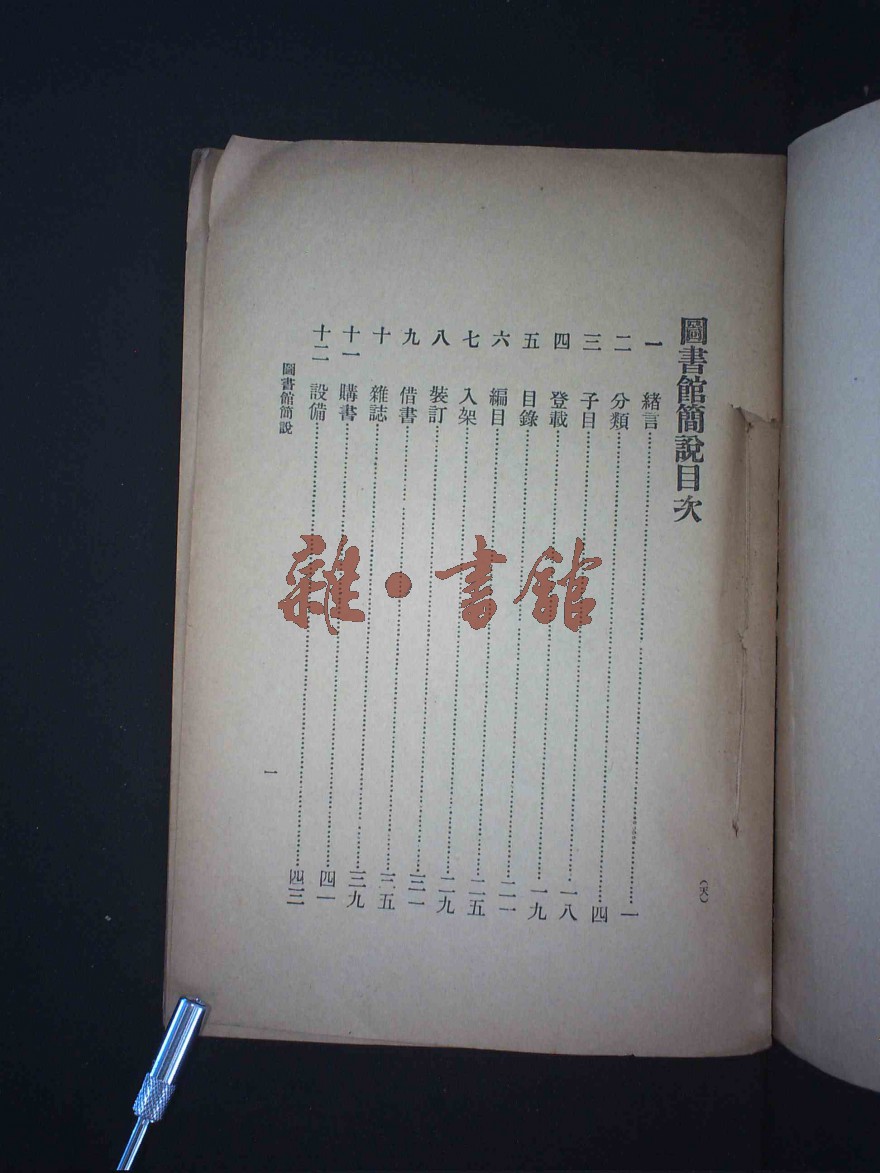 圖書館簡說目次
(天)
一 緒言……一
二 分類……四
三 子目……一八
四 登載……一九
五 目錄……二一
六 編目……二五
七 入架……二九
八 裝訂……三一
九 借書……三五
十 雜誌……三九
十一 購書……四一
十二 設備……四三
圖書館簡說
一
雜·書館